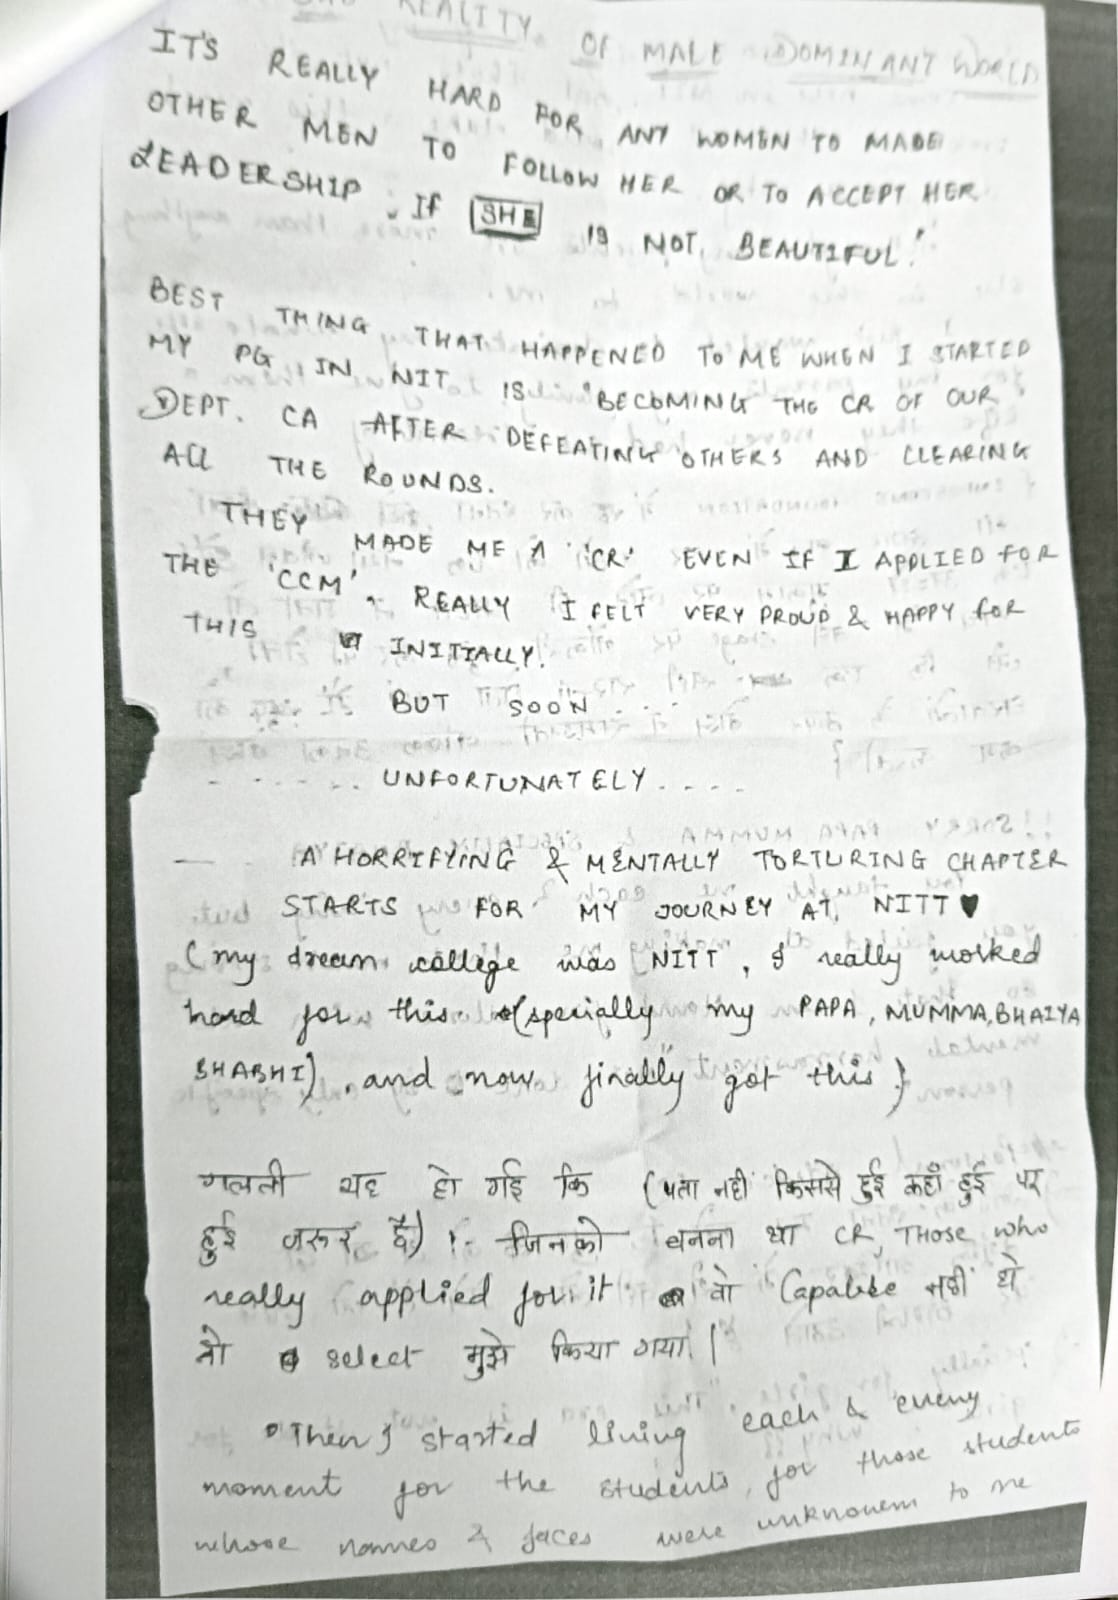 REALITY OF MALE DOMINANT WORLD
IT'S REALLY HARD FOR ANY WOMEN TO MADE
OTHER MEN TO FOLLOW HER OR TO ACCEPT HER
LEADERSHIP. If SHE IS NOT BEAUTIFUL!
BEST THING THAT HAPPENED TO ME WHEN I STARTED
MY PG IN NIT IS BECOMING THE CR OF OUR
DEPT. CA AFTER DEFEATING OTHERS AND CLEARING
All THE ROUNDS.
THEY MADE ME A 'CR' EVEN IF I APPLIED FOR
THE 'CCM'. REALLY I FELT VERY PROUD & HAPPY for
THIS INITIALLY.
BUT SOON....
...... UNFORTUNATELY....
A HORRIFYING & MENTALLY TORTURING CHAPTER
STARTS FOR MY JOURNEY AT NITT ♥
(my dream college was NITT, I really worked
hard for this. (specially my PAPA, MUMMA, BHAIYA
BHABHI), and now finally got this)
गलती यह हो गई कि (पता नहीं किससे हुई कहाँ हुई पर
हुई जरूर है) :- जिनको बनना था CR, THOSE who
really applied for it वो Capable नहीं थे
तो select मुझे किया गया।
• Then I started living each & every
moment for the students, for those students
whose names & faces were unknowen to me